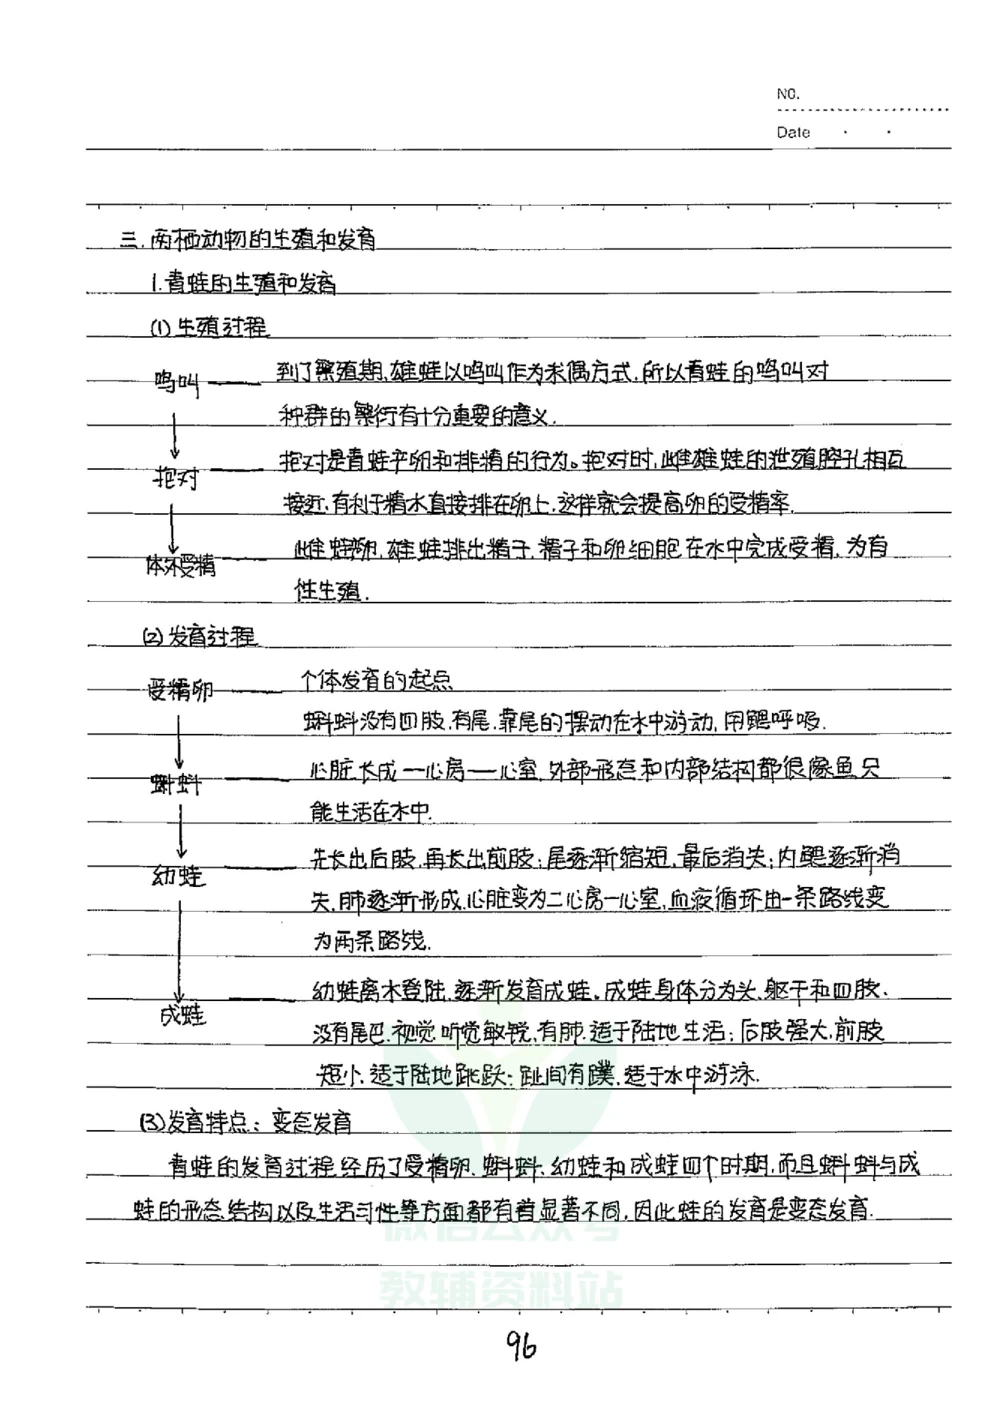 NO.
Date
三.两栖动物的生殖和发育
1.青蛙的生殖和发育
(1)生殖过程
鸣叫——到了繁殖期,雄蛙以鸣叫作为求偶方式.所以青蛙的鸣叫对
种群的繁衍有十分重要的意义.
抱对——抱对是青蛙产卵和排精的行为。抱对时,雌雄蛙的泄殖腔孔相互
接近.有利于精水直接排在卵上.这样就会提高卵的受精率.
体外受精——雌蛙卵.雄蛙排出精子.精子和卵细胞在水中完成受精.为有
性生殖.
(2)发育过程
受精卵——个体发育的起点
蝌蚪没有四肢.有尾.靠尾的摆动在水中游动,用鳃呼吸.
蝌蚪——心脏长成一心房一心室.外部形态和内部结构都很像鱼只
能生活在水中.
幼蛙——先长出后肢.再长出前肢;尾逐渐缩短.最后消失;内鳃逐渐消
失.肺逐渐形成.心脏变为二心房一心室.血液循环由一条路线变
为两条路线.
成蛙——幼蛙离水登陆.逐渐发育成蛙。成蛙身体分为头.躯干和四肢.
没有尾巴.视觉.听觉敏锐.有肺.适于陆地生活;后肢强大.前肢
短小.适于陆地跳跃;趾间有蹼.适于水中游泳.
(3)发育特点:变态发育
青蛙的发育过程经历了受精卵.蝌蚪.幼蛙和成蛙四个时期.而且蝌蚪与成
蛙的形态结构以及生活习性等方面都有着显著不同.因此蛙的发育是变态发育.
微信公众号
教辅资料站
96